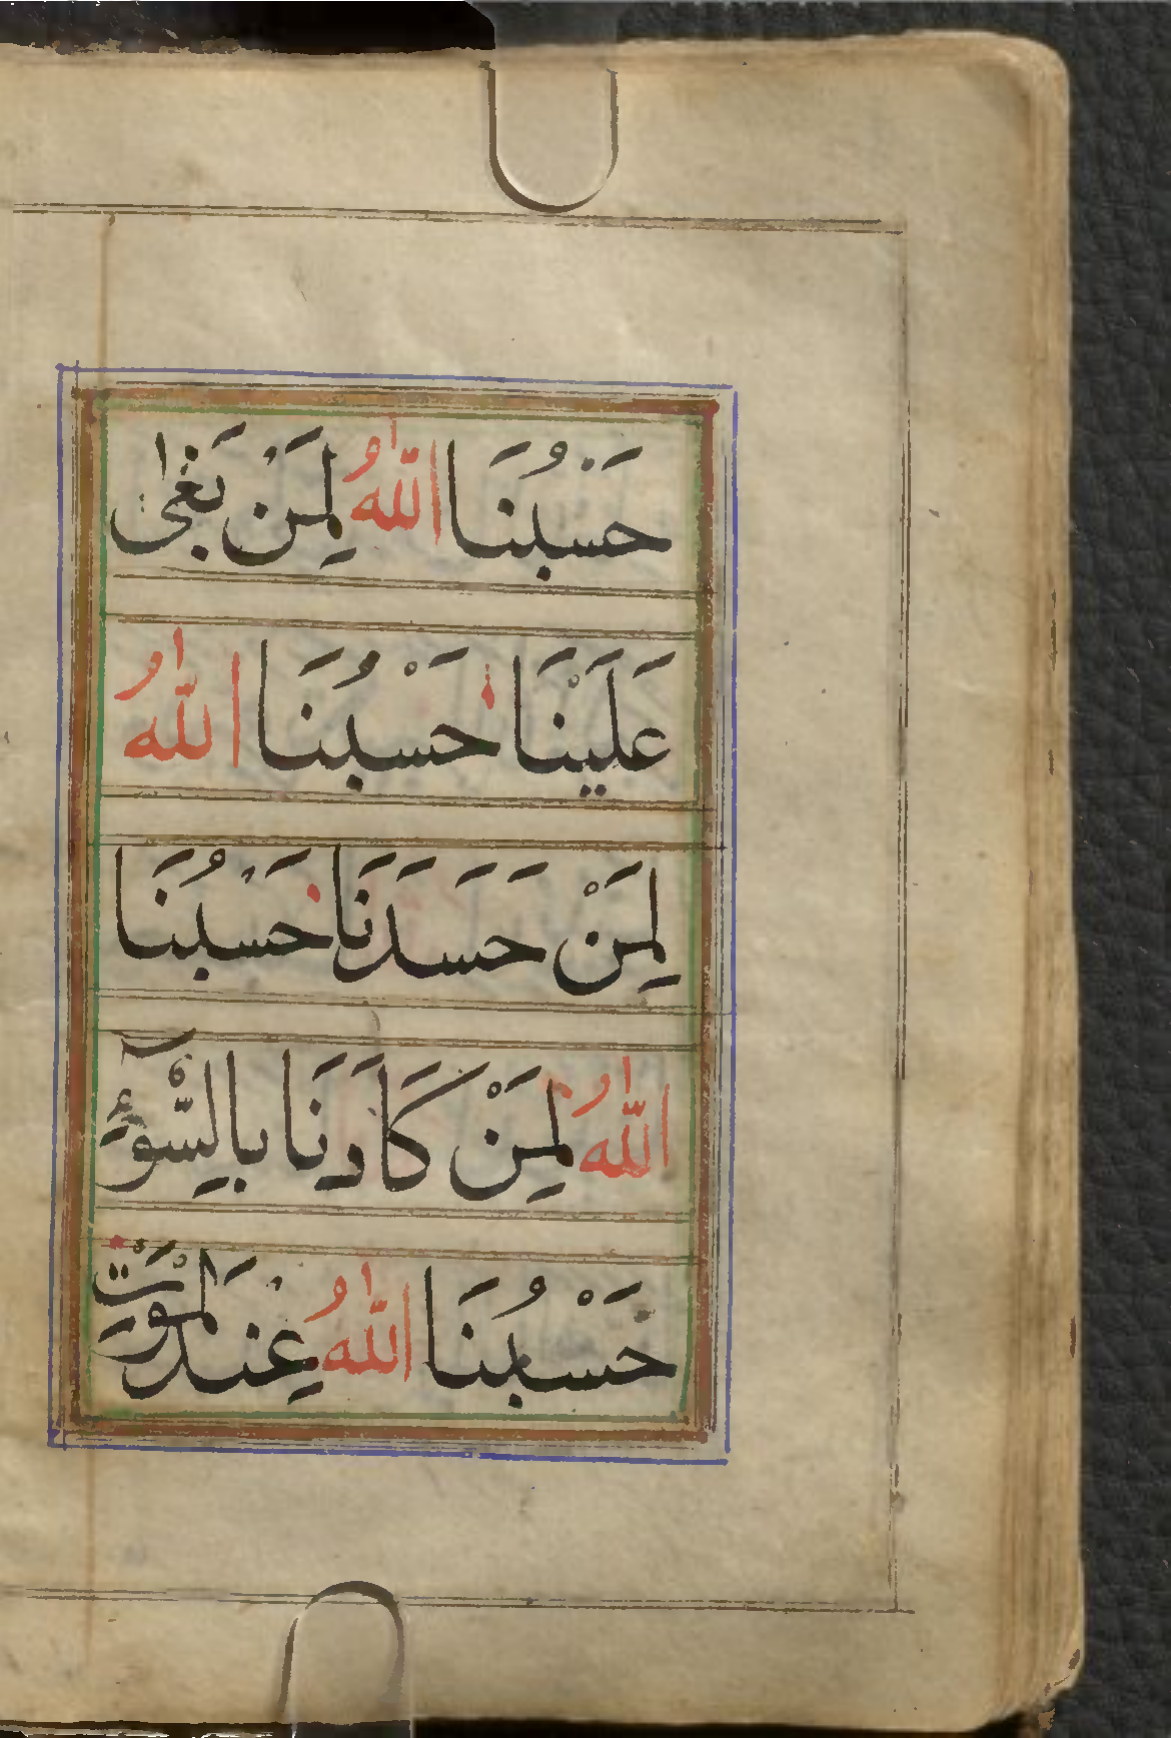 حَسْبُنَا اللّٰهُ لِمَنْ بَغٰى
عَلَيْنَا حَسْبُنَا اللّٰهُ
لِمَنْ حَسَدَنَا حَسْبُنَا
اللّٰهُ لِمَنْ كَادَنَا بِالسُّوْٓءِ
حَسْبُنَا اللّٰهُ عِنْدَ الْمَوْتِ